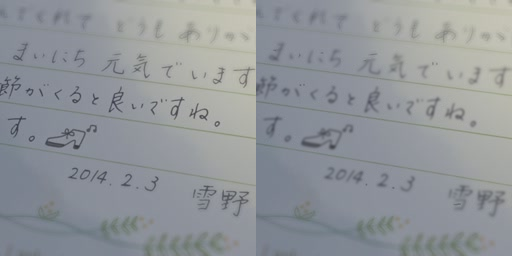 てくれて どうも ありが
まいにち 元気でいます
節がくると良いですね。
す。
2014.2.3
雪野
てくれて どうも ありが
まいにち 元気でいます
節がくると良いですね。
す。
2014.2.3
雪野